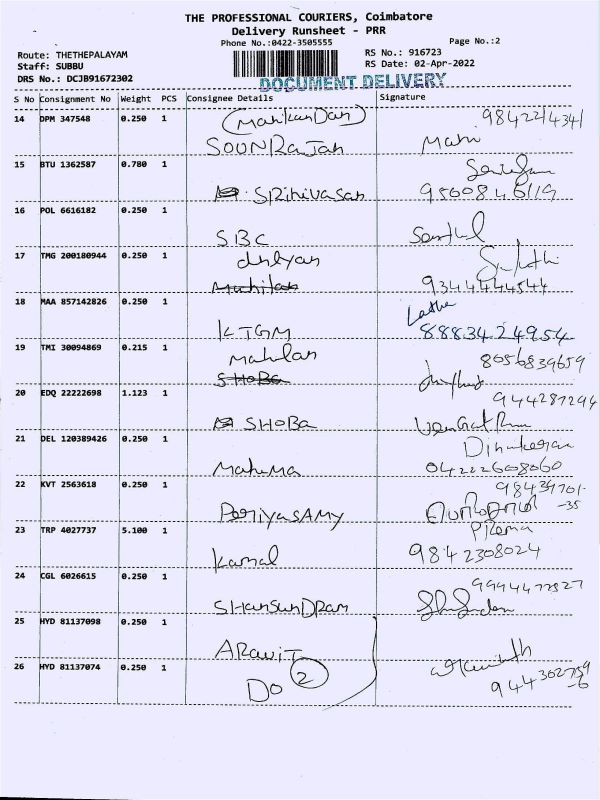 THE PROFESSIONAL COURIERS, Coimbatore
Delivery Runsheet - PRR
Phone No.:0422-3505555
Page No.:2
Route: THETHEPALAYAM
RS No.: 916723
Staff: SUBBU
RS Date: 02-Apr-2022
DRS No.: DCJB91672302
DOCUMENT DELIVERY
S No Consignment No Weight PCS Consignee Details Signature
14 DPM 347548 0.250 1
(ManikanDan) 9842214341
SOUNRaJan Mani
15 BTU 1362587 0.780 1
SRinivasan 9560846119
16 POL 6616182 0.250 1
SBC Senthil
17 TMG 200180944 0.250 1
9344444544
18 MAA 857142826 0.250 1
Latha
KTGM 8883424954
19 TMI 30094869 0.215 1
8056839659
SHOBa
20 EDQ 22222698 1.123 1
944287294
SHOBa
21 DEL 120389426 0.250 1
Dinakaran
Mahima 04222608060
22 KVT 2563618 0.250 1
98434701-
PeriyasAMY -35
23 TRP 4027737 5.100 1
Prema
Kamal 9842308024
24 CGL 6026615 0.250 1
9994477527
SHansunDRam
25 HYD 81137098 0.250 1
ARaviT
26 HYD 81137074 0.250 1
Do 2
944302759
-6